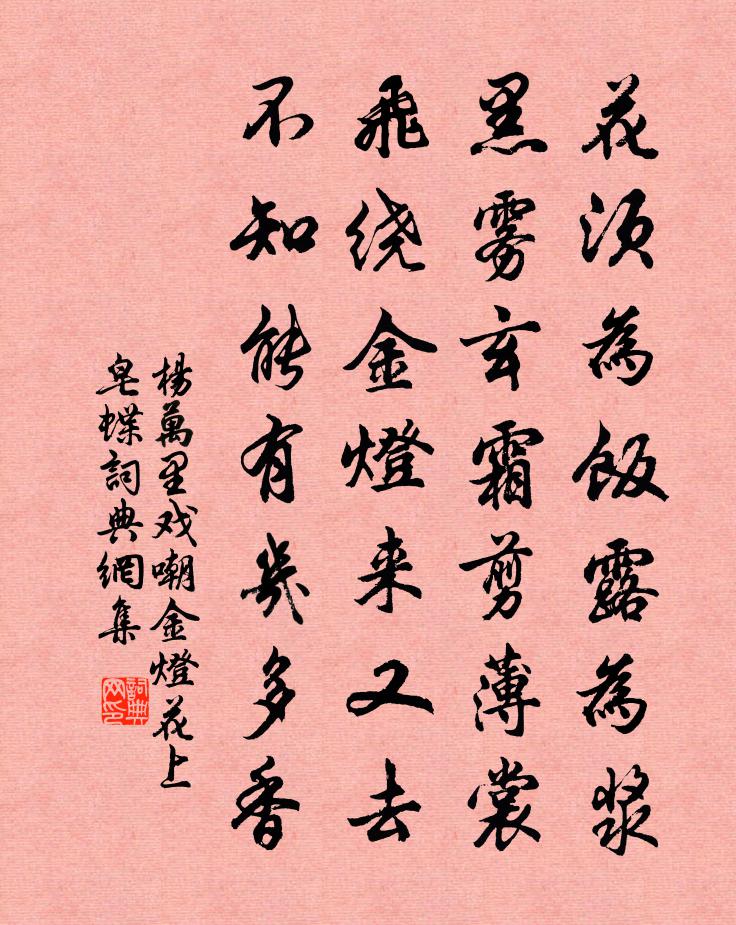 花须為飯露為漿
黑雾玄霜剪薄裳
飛绕金燈来又去
不知能有幾多香
楊萬里戏嘲金燈花上
皂蝶詞典網集
詞典网印